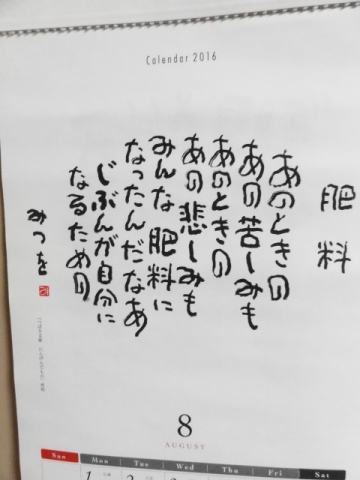 Calendar 2016
肥料
あのときの
あの苦しみも
あのときの
あの悲しみも
みんな肥料に
なったんだなあ
じぶんが自分に
なるための
みつを
8
AUGUST
Sun Mon Tue Wed Thu Fri Sat
1 2 3